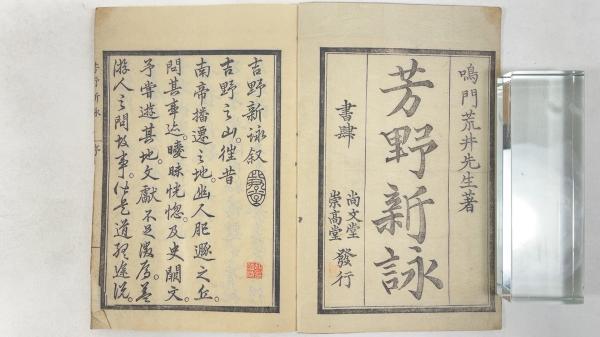 鳴門荒井先生著
芳野新詠
書肆
尚文堂
崇高堂
發行
吉野新詠叙
吉野之山。徃昔
南帝播遷之地。幽人肥遯之丘。
問其事迹。曖昧恍惚。及史闕文。
予嘗遊其地。文獻不足徴焉。蓋
游人之問故事。道聽途説。
芳野新詠 序